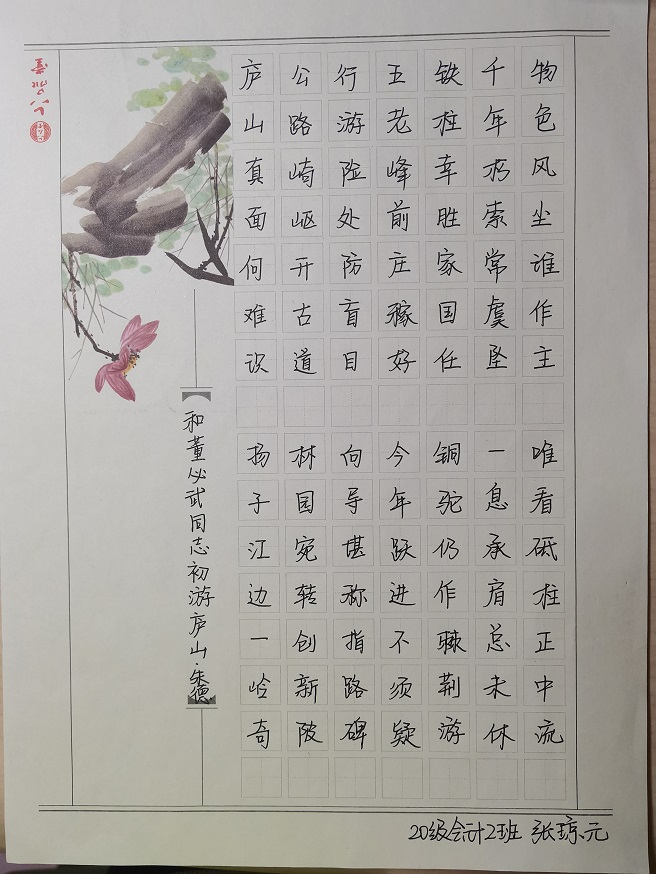 和董必武同志初游庐山·朱德
庐山真面何难识 扬子江边一岭奇
公路崎岖开古道 林园宛转创新陂
行游险处防盲目 向导堪称指路碑
五老峰前庄稼好 今年跃进不须疑
铁柱幸胜家国任 铜驼仍作棘荆游
千年朽索常虞坠 一息承肩总未休
物色风尘谁作主 唯看砥柱正中流
20级会计2班 张琼元